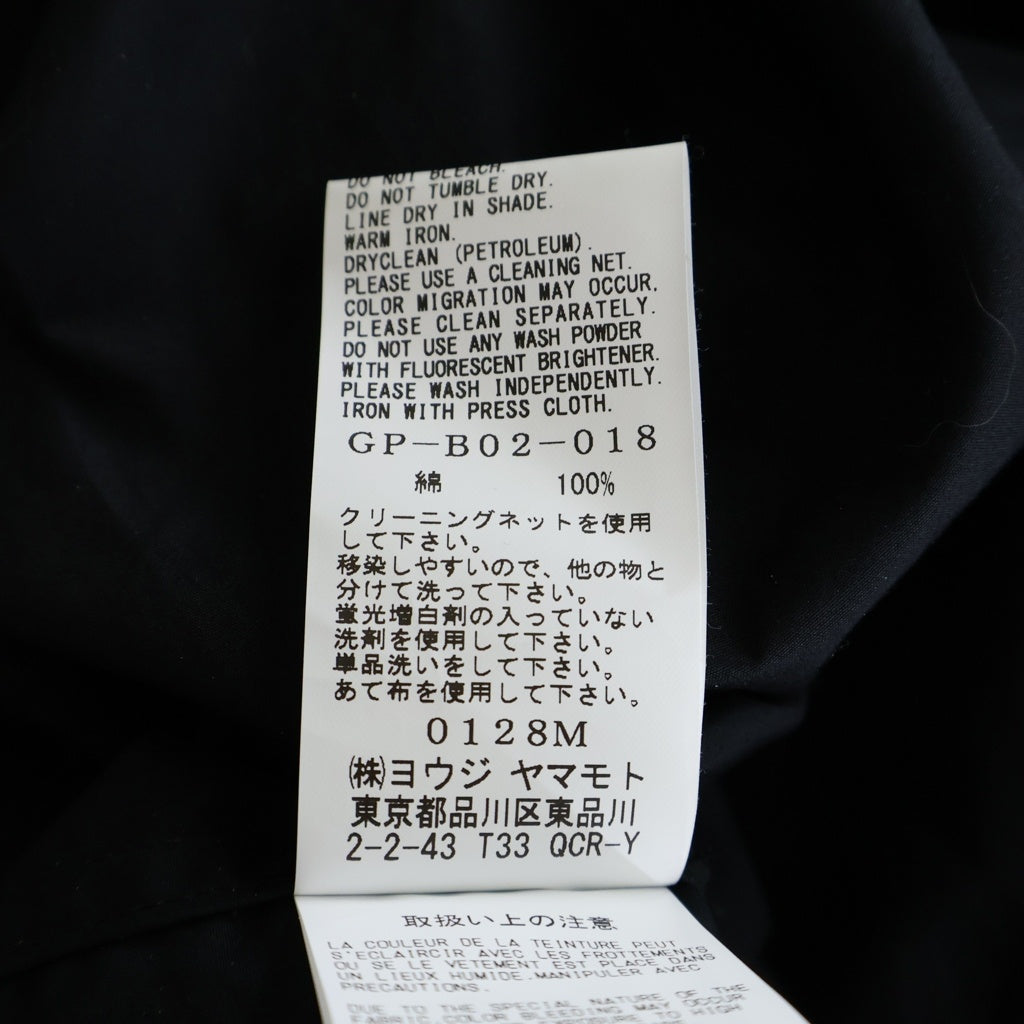 DO NOT BLEACH.
DO NOT TUMBLE DRY.
LINE DRY IN SHADE.
WARM IRON.
DRYCLEAN (PETROLEUM).
PLEASE USE A CLEANING NET.
COLOR MIGRATION MAY OCCUR.
PLEASE CLEAN SEPARATELY.
DO NOT USE ANY WASH POWDER
WITH FLUORESCENT BRIGHTENER.
PLEASE WASH INDEPENDENTLY.
IRON WITH PRESS CLOTH.
GP-B02-018
綿 100%
クリーニングネットを使用
して下さい。
移染しやすいので、他の物と
分けて洗って下さい。
蛍光増白剤の入っていない
洗剤を使用して下さい。
単品洗いをして下さい。
あて布を使用して下さい。
0128M
㈱ヨウジ ヤマモト
東京都品川区東品川
2-2-43 T33 QCR-Y
取扱い上の注意
LA COULEUR DE LA TEINTURE PEUT
S'ECLAIRCIR AVEC LES FROTTEMENTS
OU SE LE VETEMENT EST PLACE DANS
UN LIEUX HUMIDE.MANIPULER AVEC
PRECAUTIONS.
DUE TO THE SPECIAL NATURE OF THE
FABRIC,COLOR BLEEDING MAY OCCUR
EXPOSURE TO HIGH